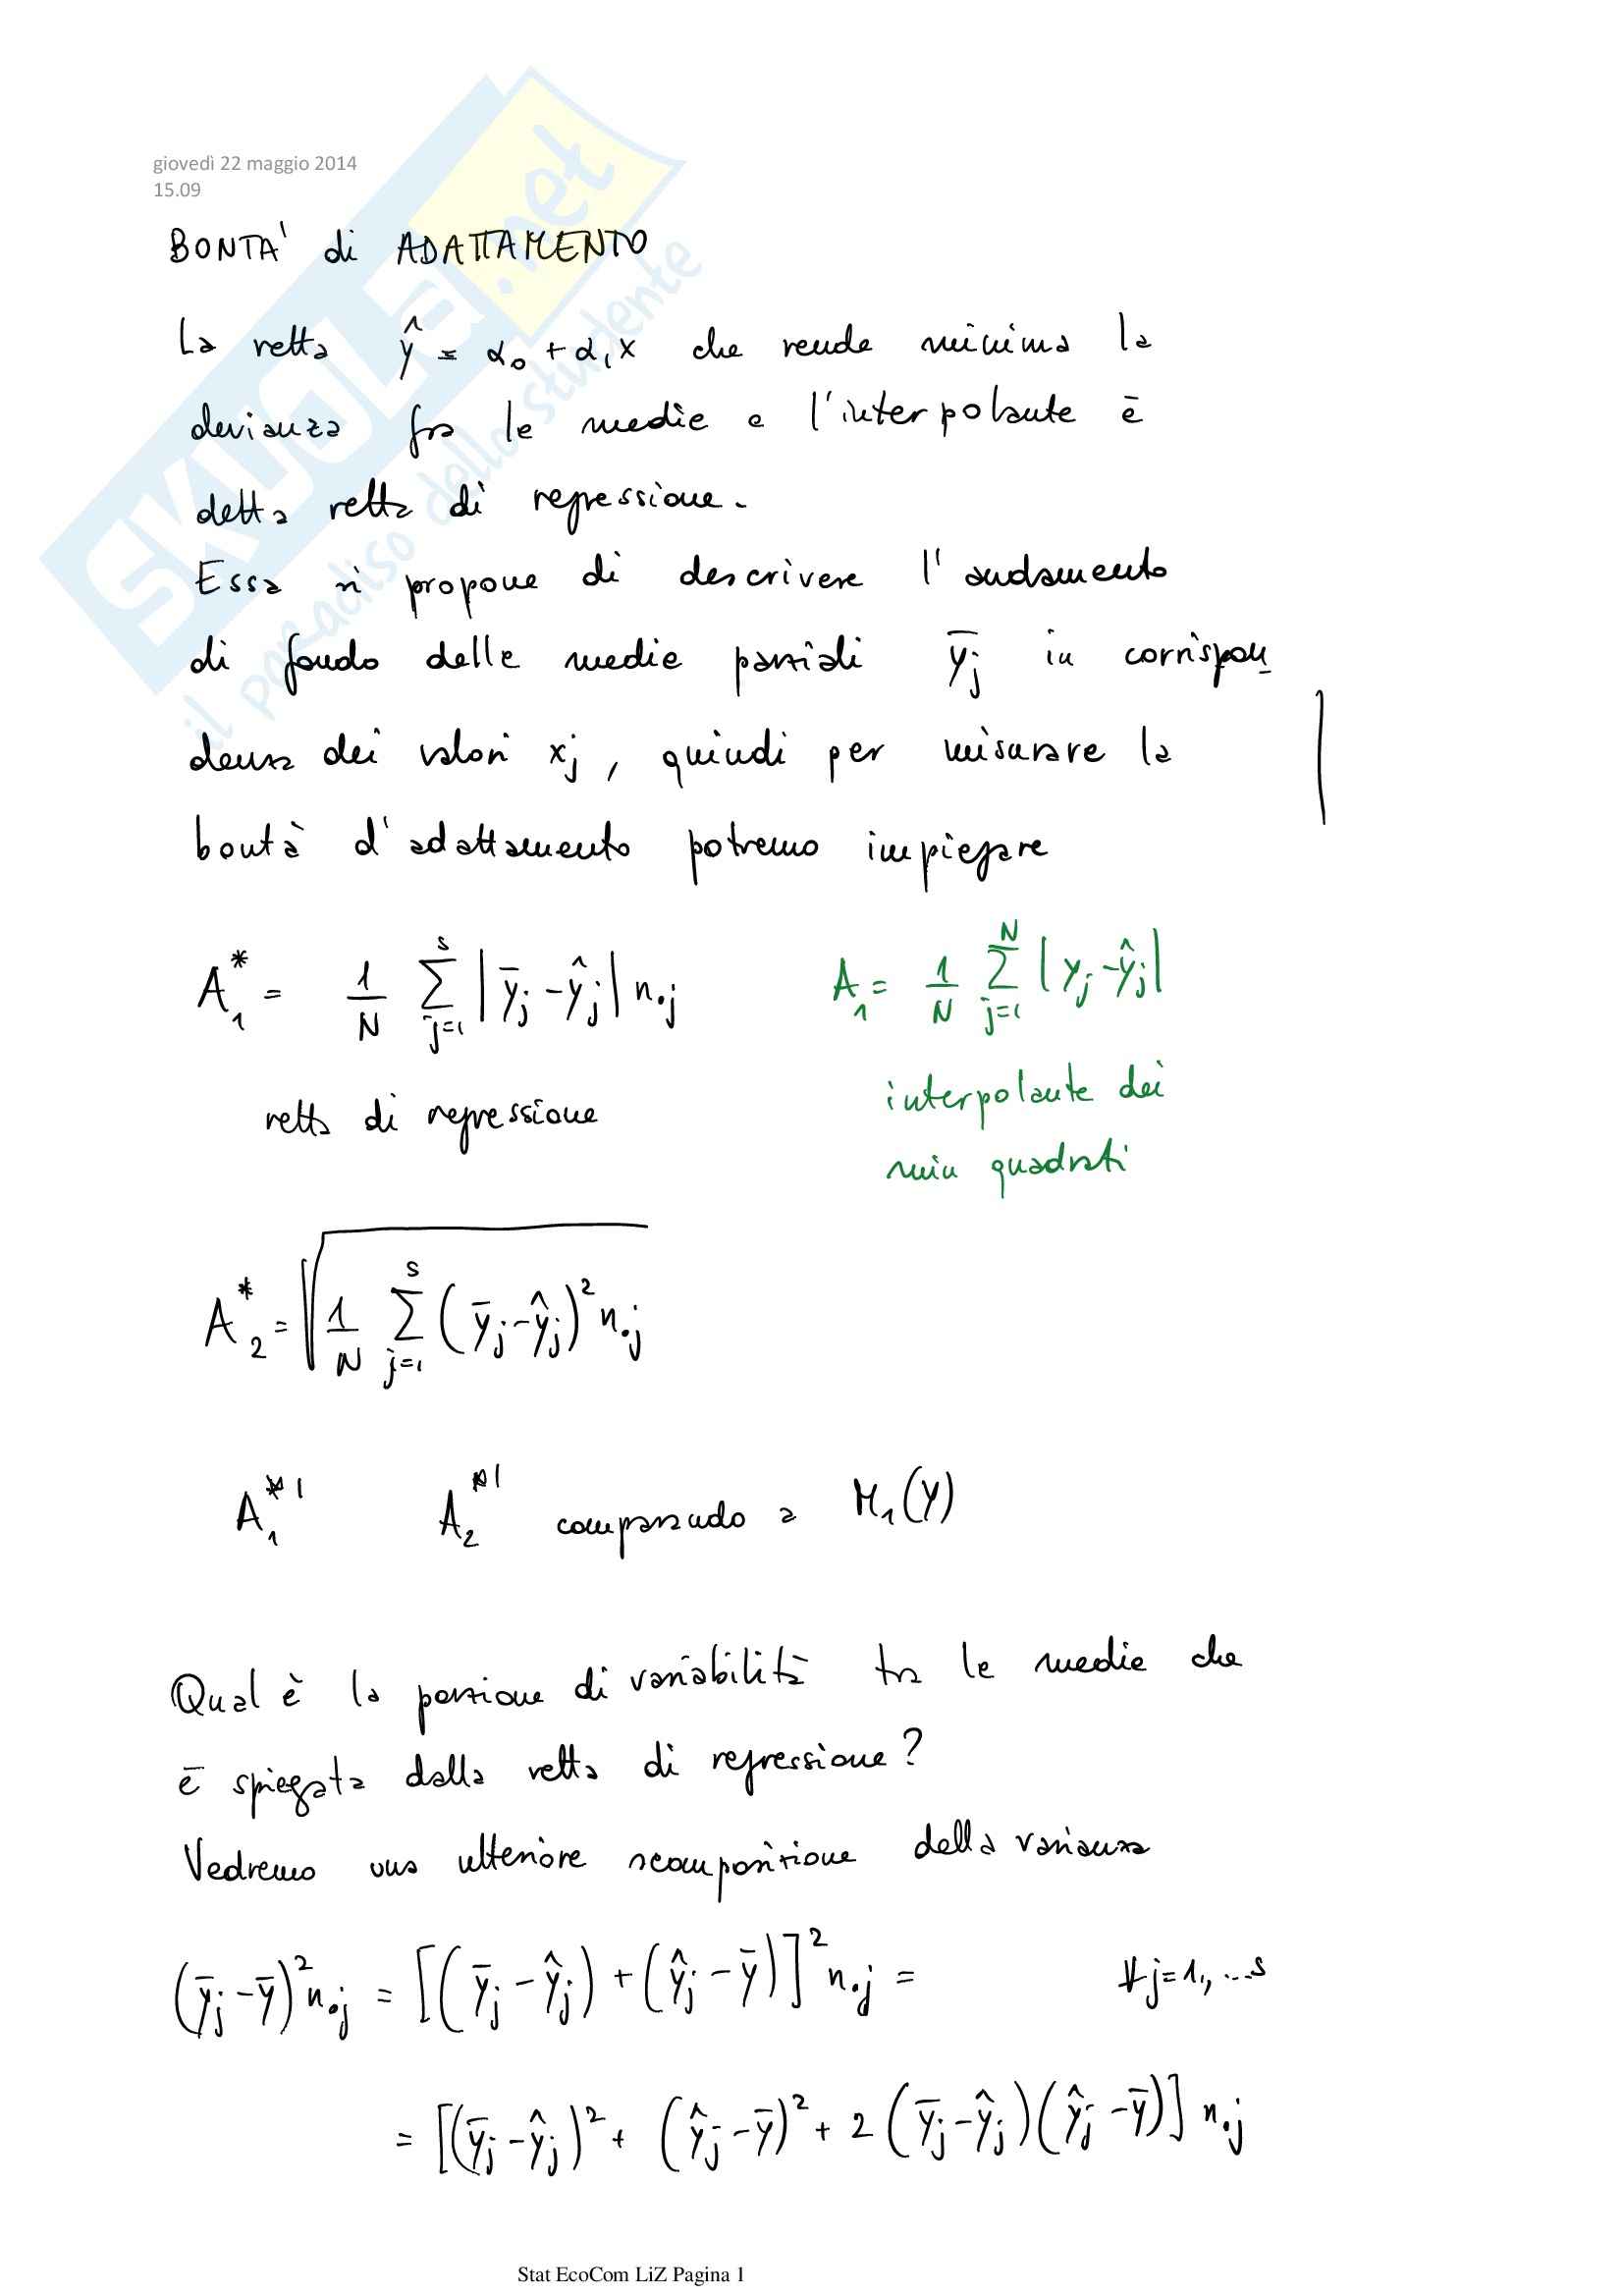 giovedì 22 maggio 2014
15.09
SKUOLA.net
il paradiso dello studente
BONTA' di ADATTAMENTO
La retta ŷ = α₀ + α₁x che rende minima la
devianza fra le medie e l'interpolante è
detta retta di regressione.
Essa si propone di descrivere l'andamento
di fondo delle medie parziali ȳj in corrispon_
denza dei valori xj, quindi per misurare la
bontà d'adattamento potremo impiegare
A₁* = 1/N Σ_{j=1}^{s} |ȳj - ŷj| n.j
A₁ = 1/N Σ_{j=1}^{N} |yj - ŷj|
retta di regressione
interpolante dei
min quadrati
A₂* = √(1/N Σ_{j=1}^{s} (ȳj - ŷj)² n.j)
A₁*' A₂*' comparando a M₁(Y)
Qual è la porzione di variabilità tra le medie che
è spiegata dalla retta di regressione?
Vedremo una ulteriore scomposizione della varianza
(ȳj - ȳ)² n.j = [(ȳj - ŷj) + (ŷj - ȳ)]² n.j = ∀ j=1,...s
= [(ȳj - ŷj)² + (ŷj - ȳ)² + 2(ȳj - ŷj)(ŷj - ȳ)] n.j
Stat EcoCom LiZ Pagina 1